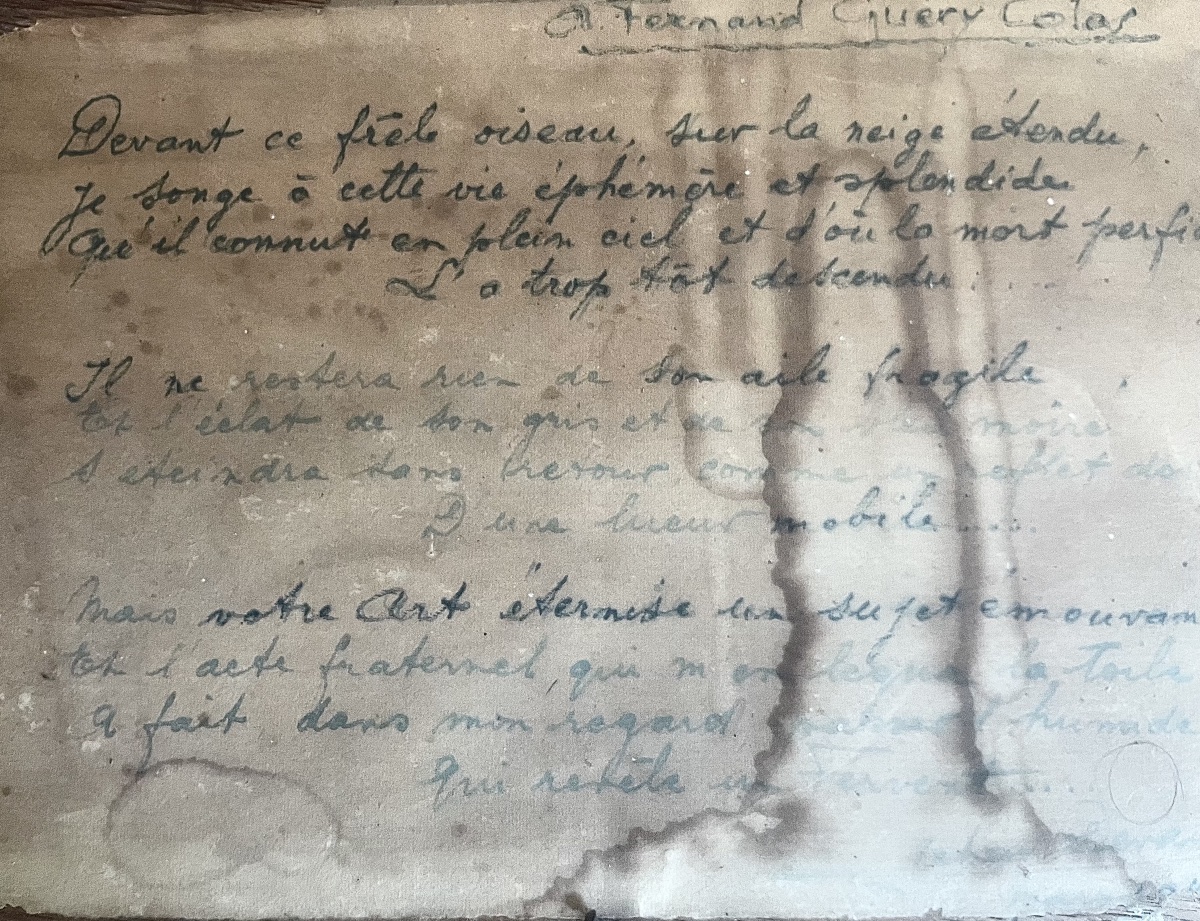 A Fernand Guery Colas
Devant ce frêle oiseau, sur la neige étendu,
Je songe à cette vie éphémère et splendide
Qu'il connut en plein ciel et d'où la mort perfi
L'a trop tôt descendu.....
Il ne restera rien de son aile fragile,
Et l'éclat de son gris et de moire
S'éteindra dans comme un
D'une lueur mobile.....
Mais votre Art éternise un sujet émouvan
Et l'acte fraternel, qui m'en légua la Toile
A fait dans mon regard humide
Qui révèle un fervent.....